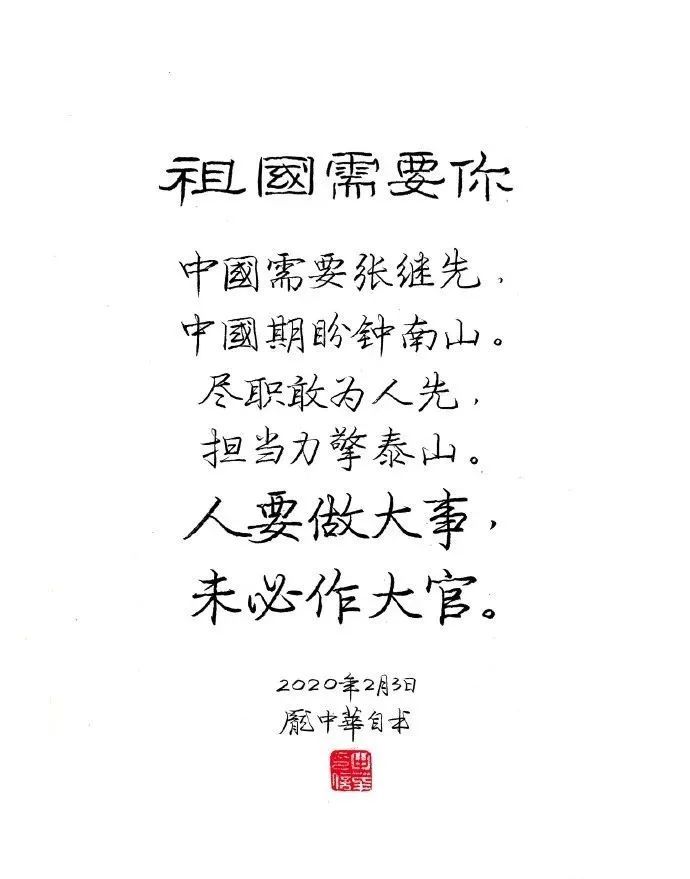 祖國需要你
中國需要张继先，
中國期盼钟南山。
尽职敢为人先，
担当力擎泰山。
人要做大事，
未必作大官。
2020年2月3日
龐中華自书